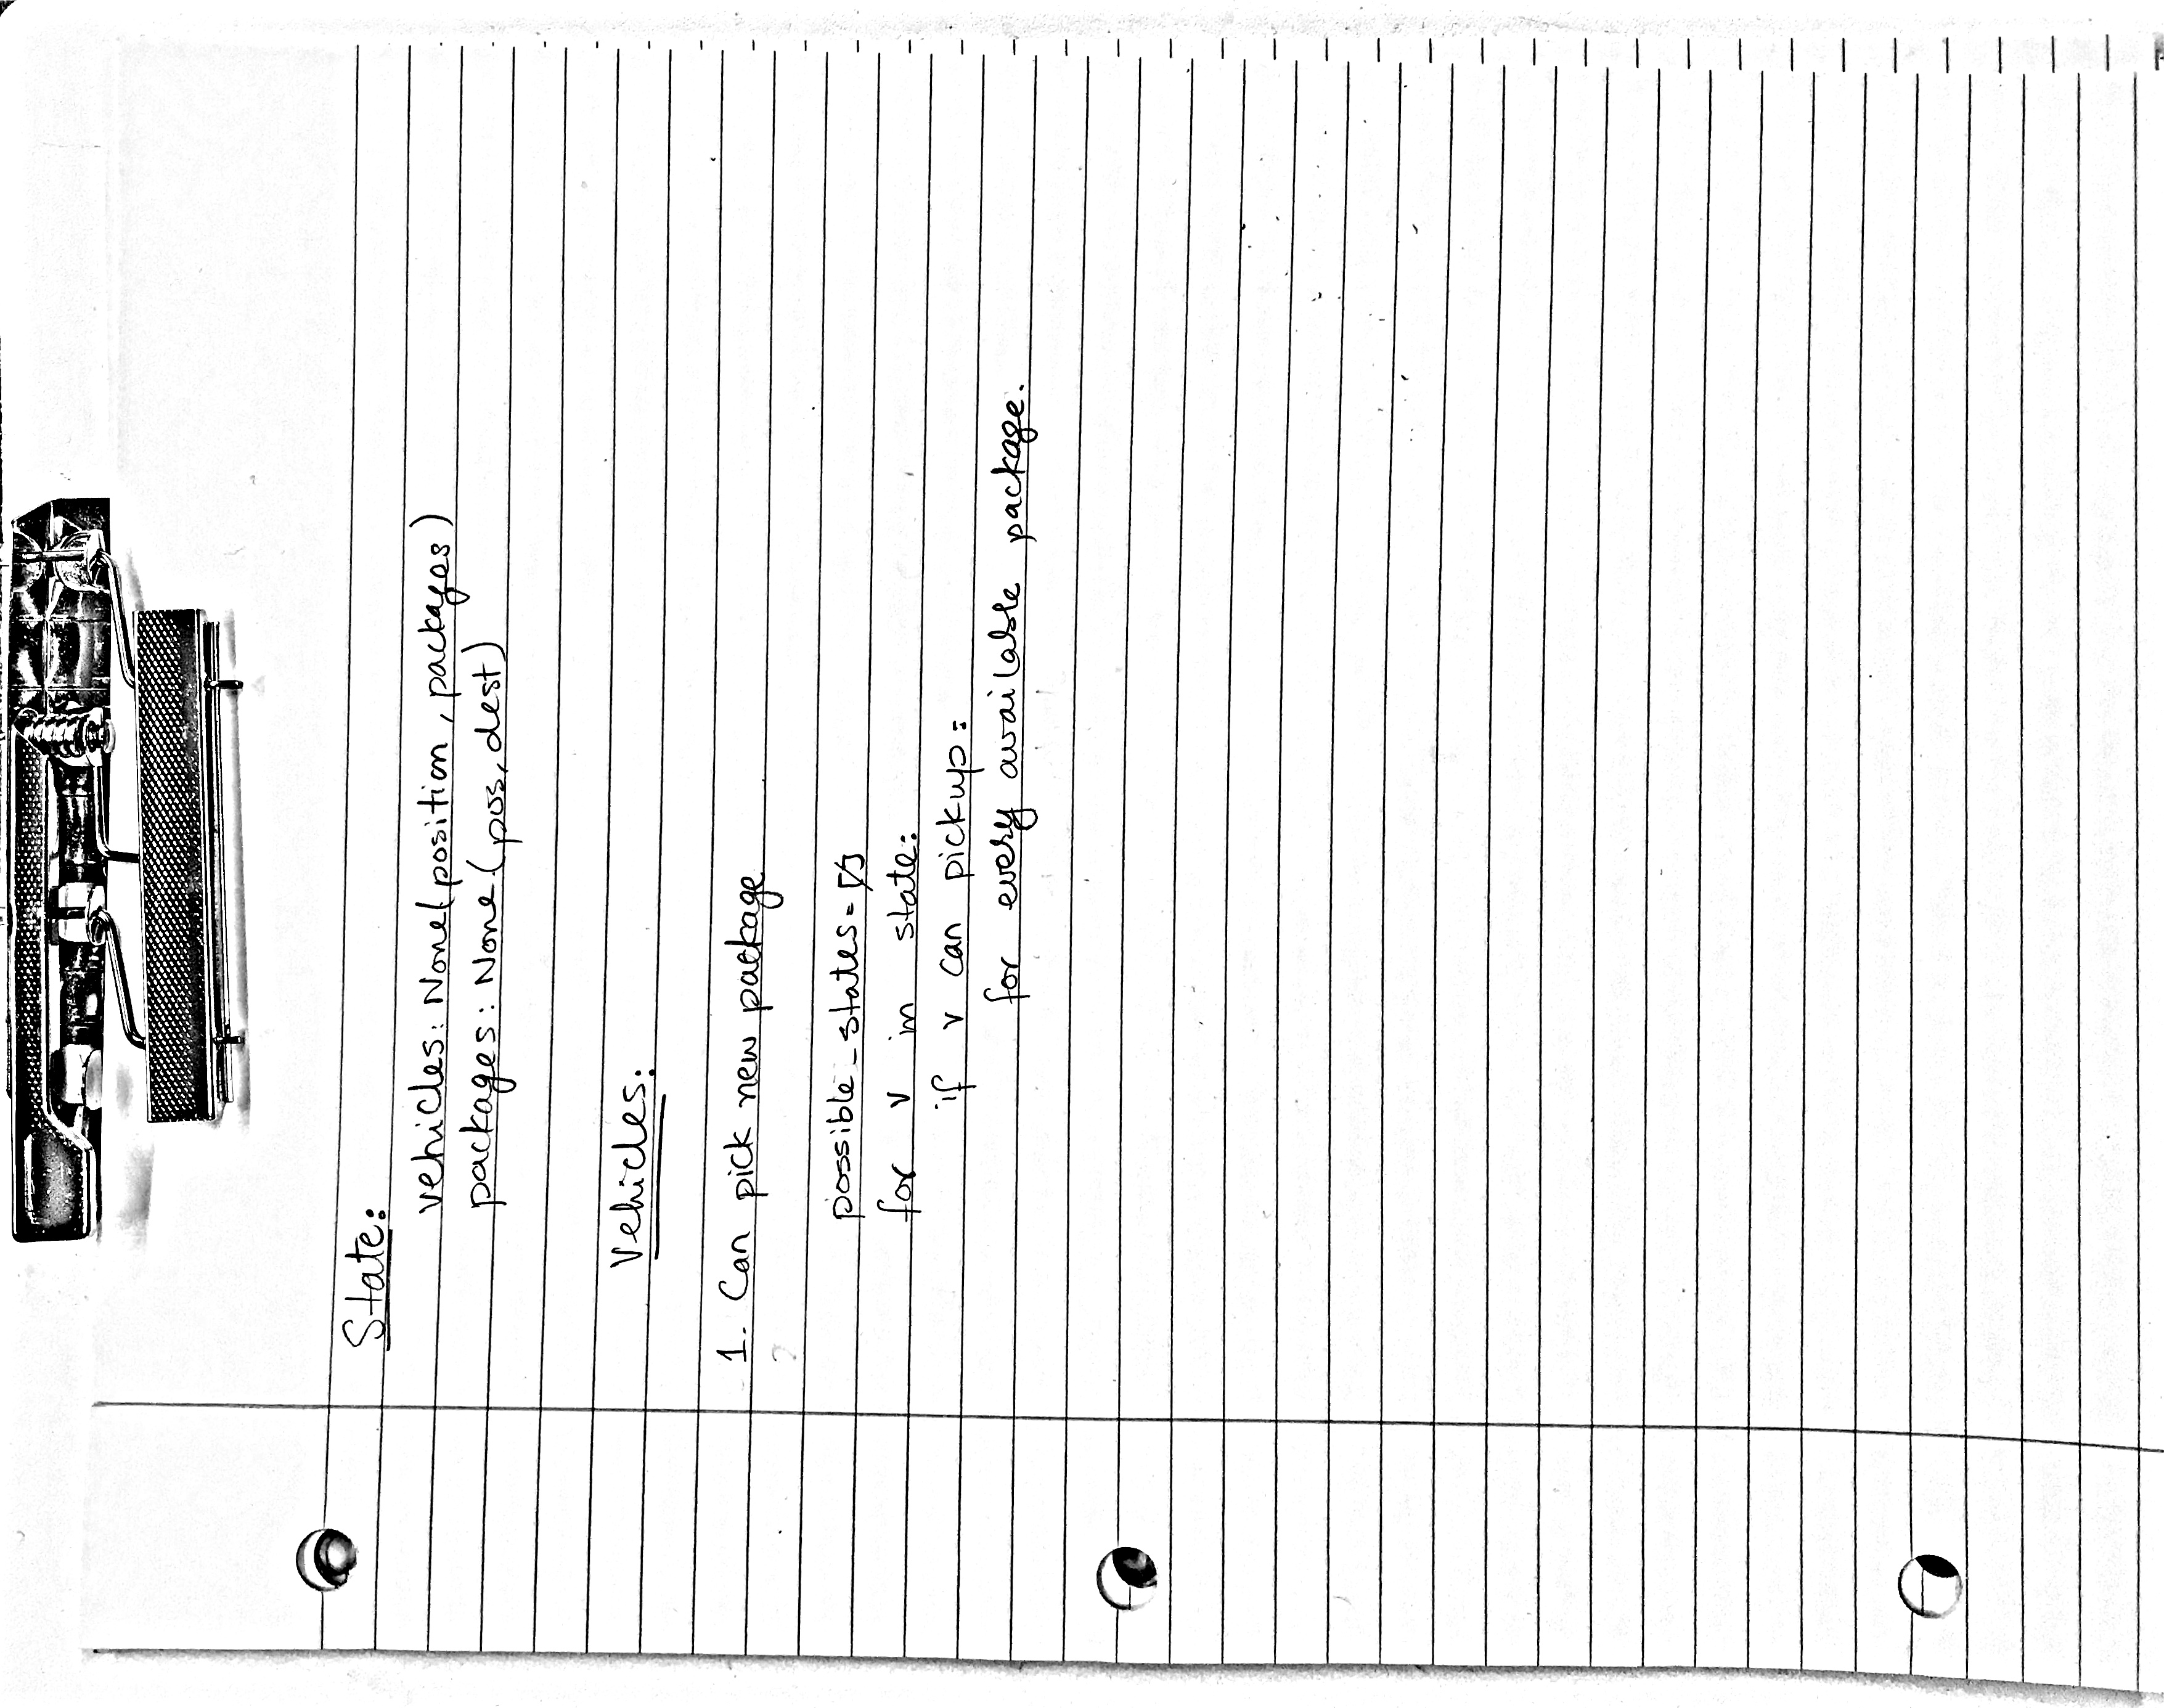 State:
vehicles: None(position, packages)
packages: None(pos, dest)
Vehicles:
1. Can pick new package
2
possible_states = []
for v in state:
if v can pickup:
for every available package.